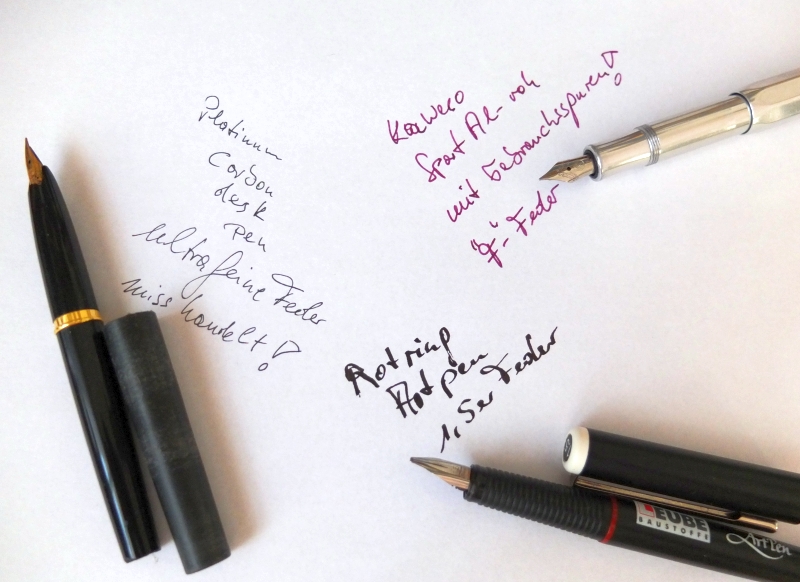 Platinum
Carbon
desk
pen
ultrafeine Feder
misshandelt!
Kaweco
Sport Al-roh
mit Gebrauchsspuren!
"F"-Feder
Rotring
Artpen
1,5er Feder
LEUBE
BAUSTOFFE
ArtPen